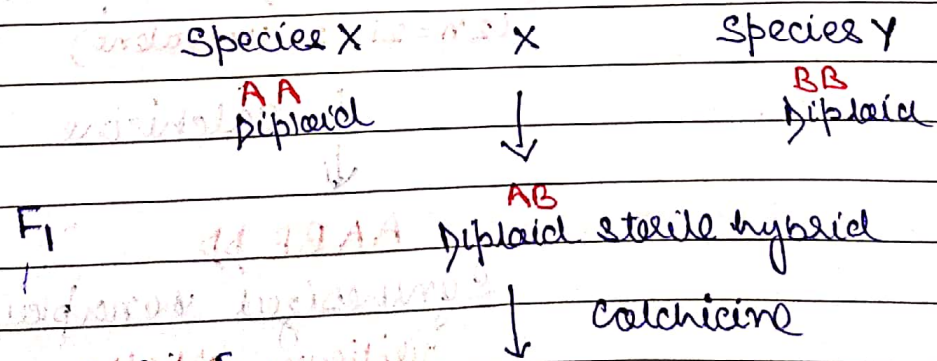 Species X × Species Y
AA BB
Diploid Diploid
AB
F1 Diploid sterile hybrid
Colchicine